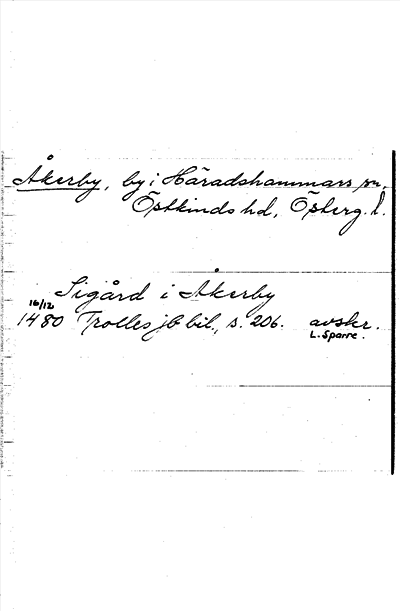 Åkerby, by i Häradshammars sn,
Östkinds hd, Österg. l.
Sigård i Åkerby
16/12
1480 Trolles jb bil., s. 206. avskr.
L. Sparre.